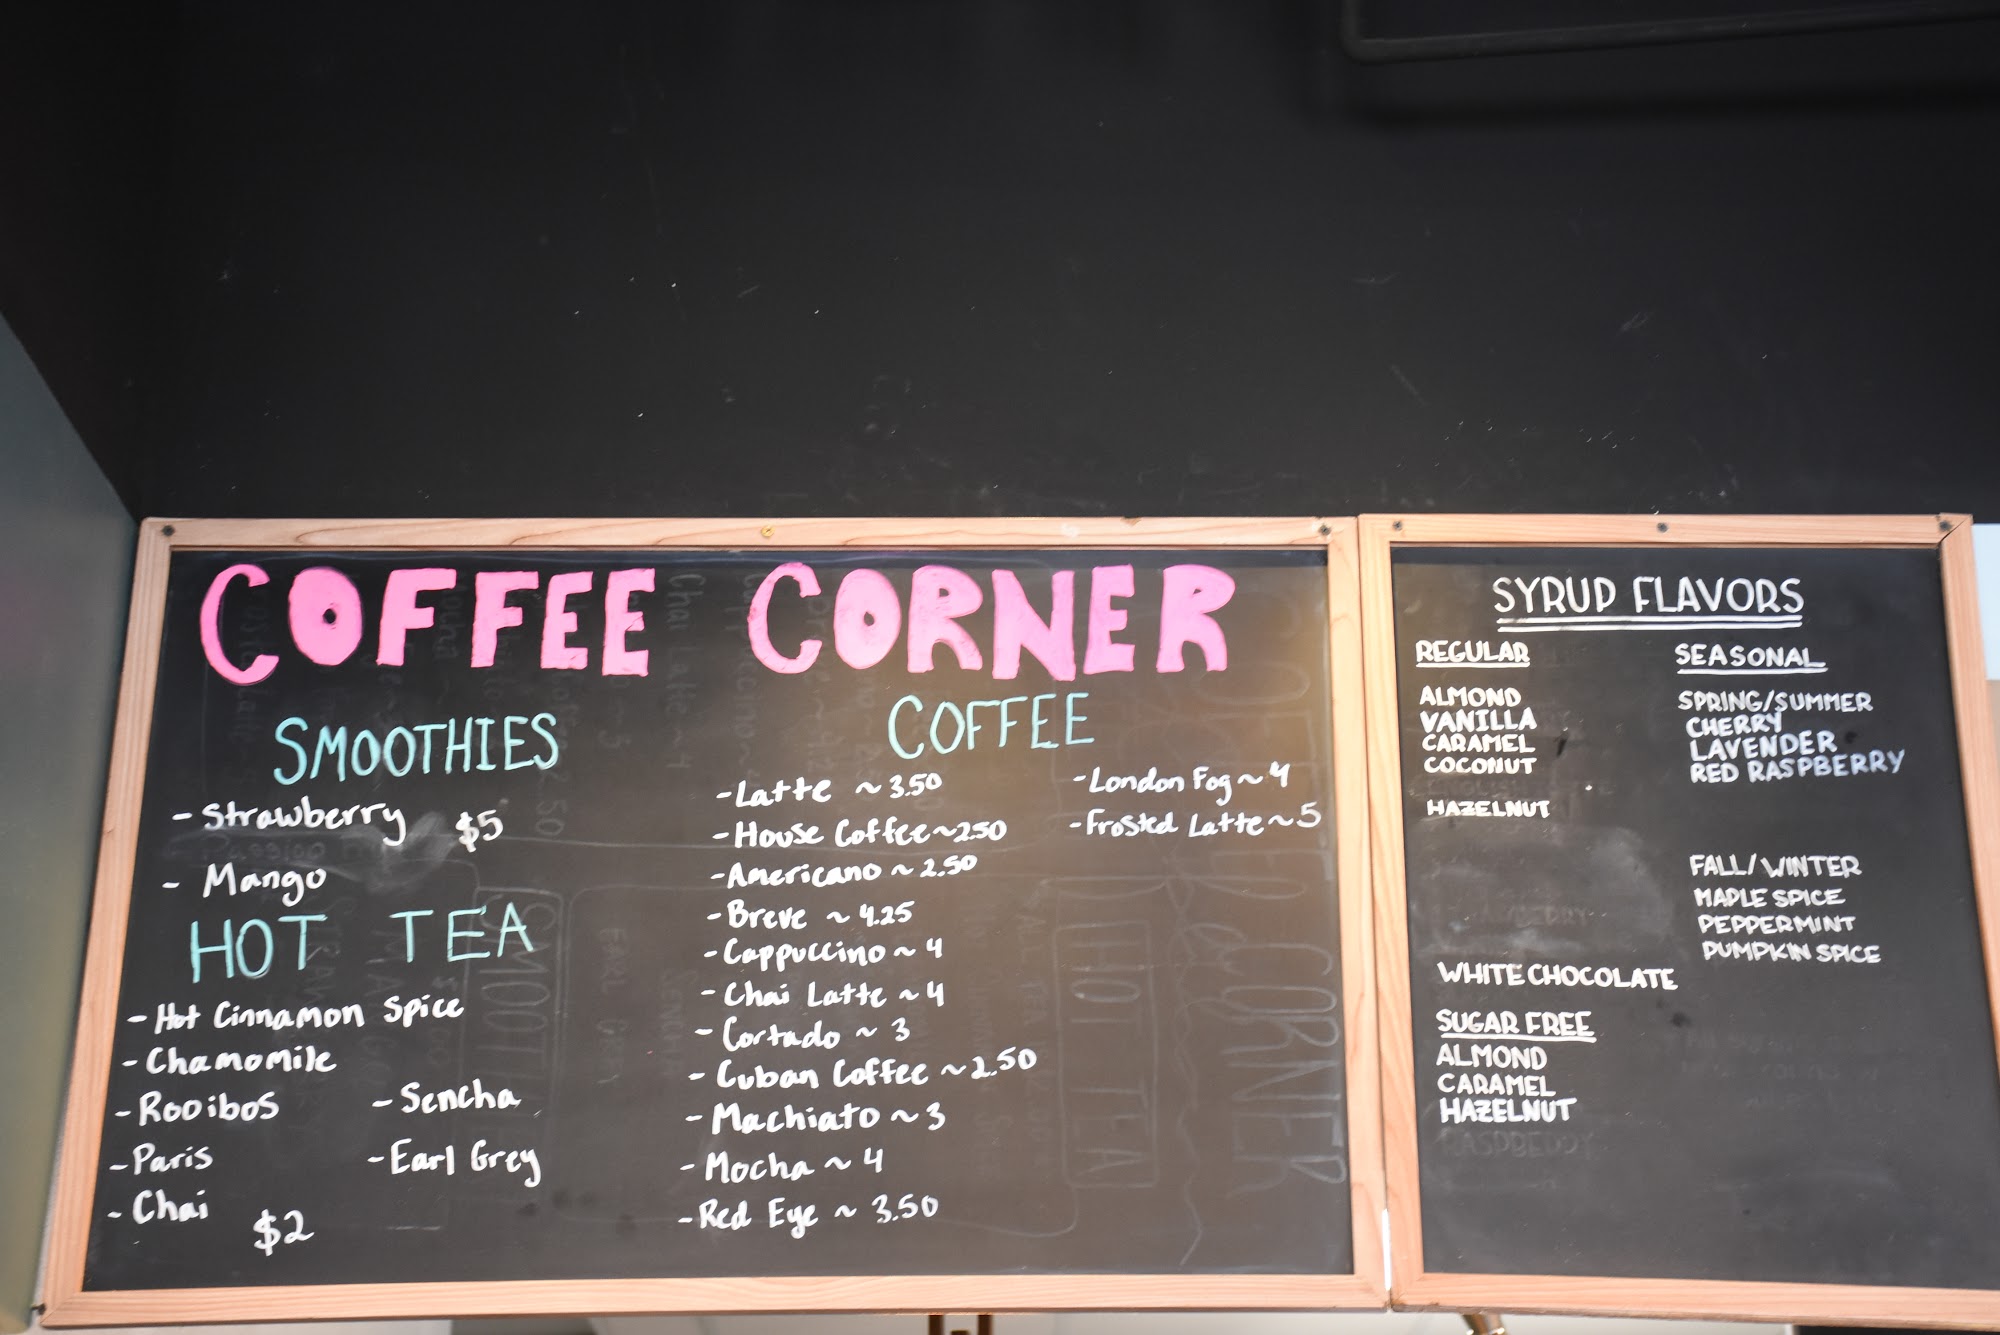 COFFEE CORNER
SMOOTHIES
- Strawberry
$5
- Mango
HOT TEA
- Hot Cinnamon Spice
- Chamomile
- Rooibos
- Paris
- Chai
- Sencha
- Earl Grey
$2
COFFEE
- Latte ~ 3.50
- House Coffee ~ 2.50
- Americano ~ 2.50
- Breve ~ 4.25
- Cappuccino ~ 4
- Chai Latte ~ 4
- Cortado ~ 3
- Cuban Coffee ~ 2.50
- Machiato ~ 3
- Mocha ~ 4
- Red Eye ~ 3.50
- London Fog ~ 4
- Frosted Latte ~ 5
SYRUP FLAVORS
REGULAR
ALMOND
VANILLA
CARAMEL
COCONUT
HAZELNUT
WHITE CHOCOLATE
SUGAR FREE
ALMOND
CARAMEL
HAZELNUT
RASPBERRY
SEASONAL
SPRING/SUMMER
CHERRY
LAVENDER
RED RASPBERRY
FALL/WINTER
MAPLE SPICE
PEPPERMINT
PUMPKIN SPICE